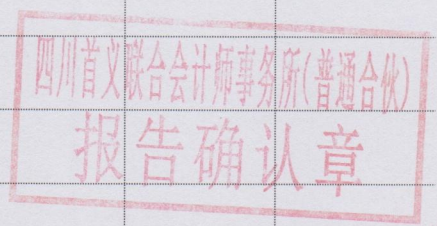 四川首义联合会计师事务所(普通合伙)
报告确认章